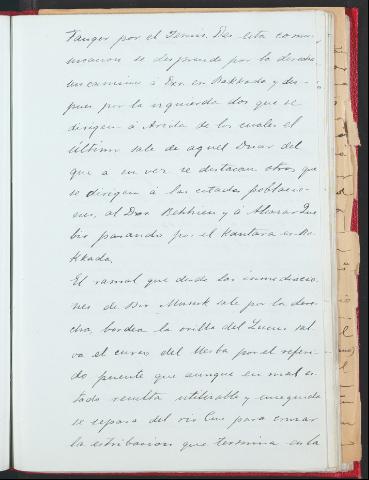 Tanger por el Jemis. De esta comu-
nicacion se desprende por la derecha
un camino á Exx en Rakkada y des-
pues por la izquierda dos que se
dirigen á Arcila de los cuales el
último sale de aquel Duar del
que a su vez se destacan otros que
se dirigen á las citadas poblacio-
nes, al Duar y á Alcazar Que
bir pasando por el Kantara en Ra-
kkada.
El ramal que desde las inmediacio-
nes de Bir sale por la dere-
cha, bordea la orilla del Lucus sal
va el curso del Uerba por el referi-
do puente que aunque en mal es-
tado resulta utilizable y enseguida
se separa del rio para cruzar
la estribacion que termina en la